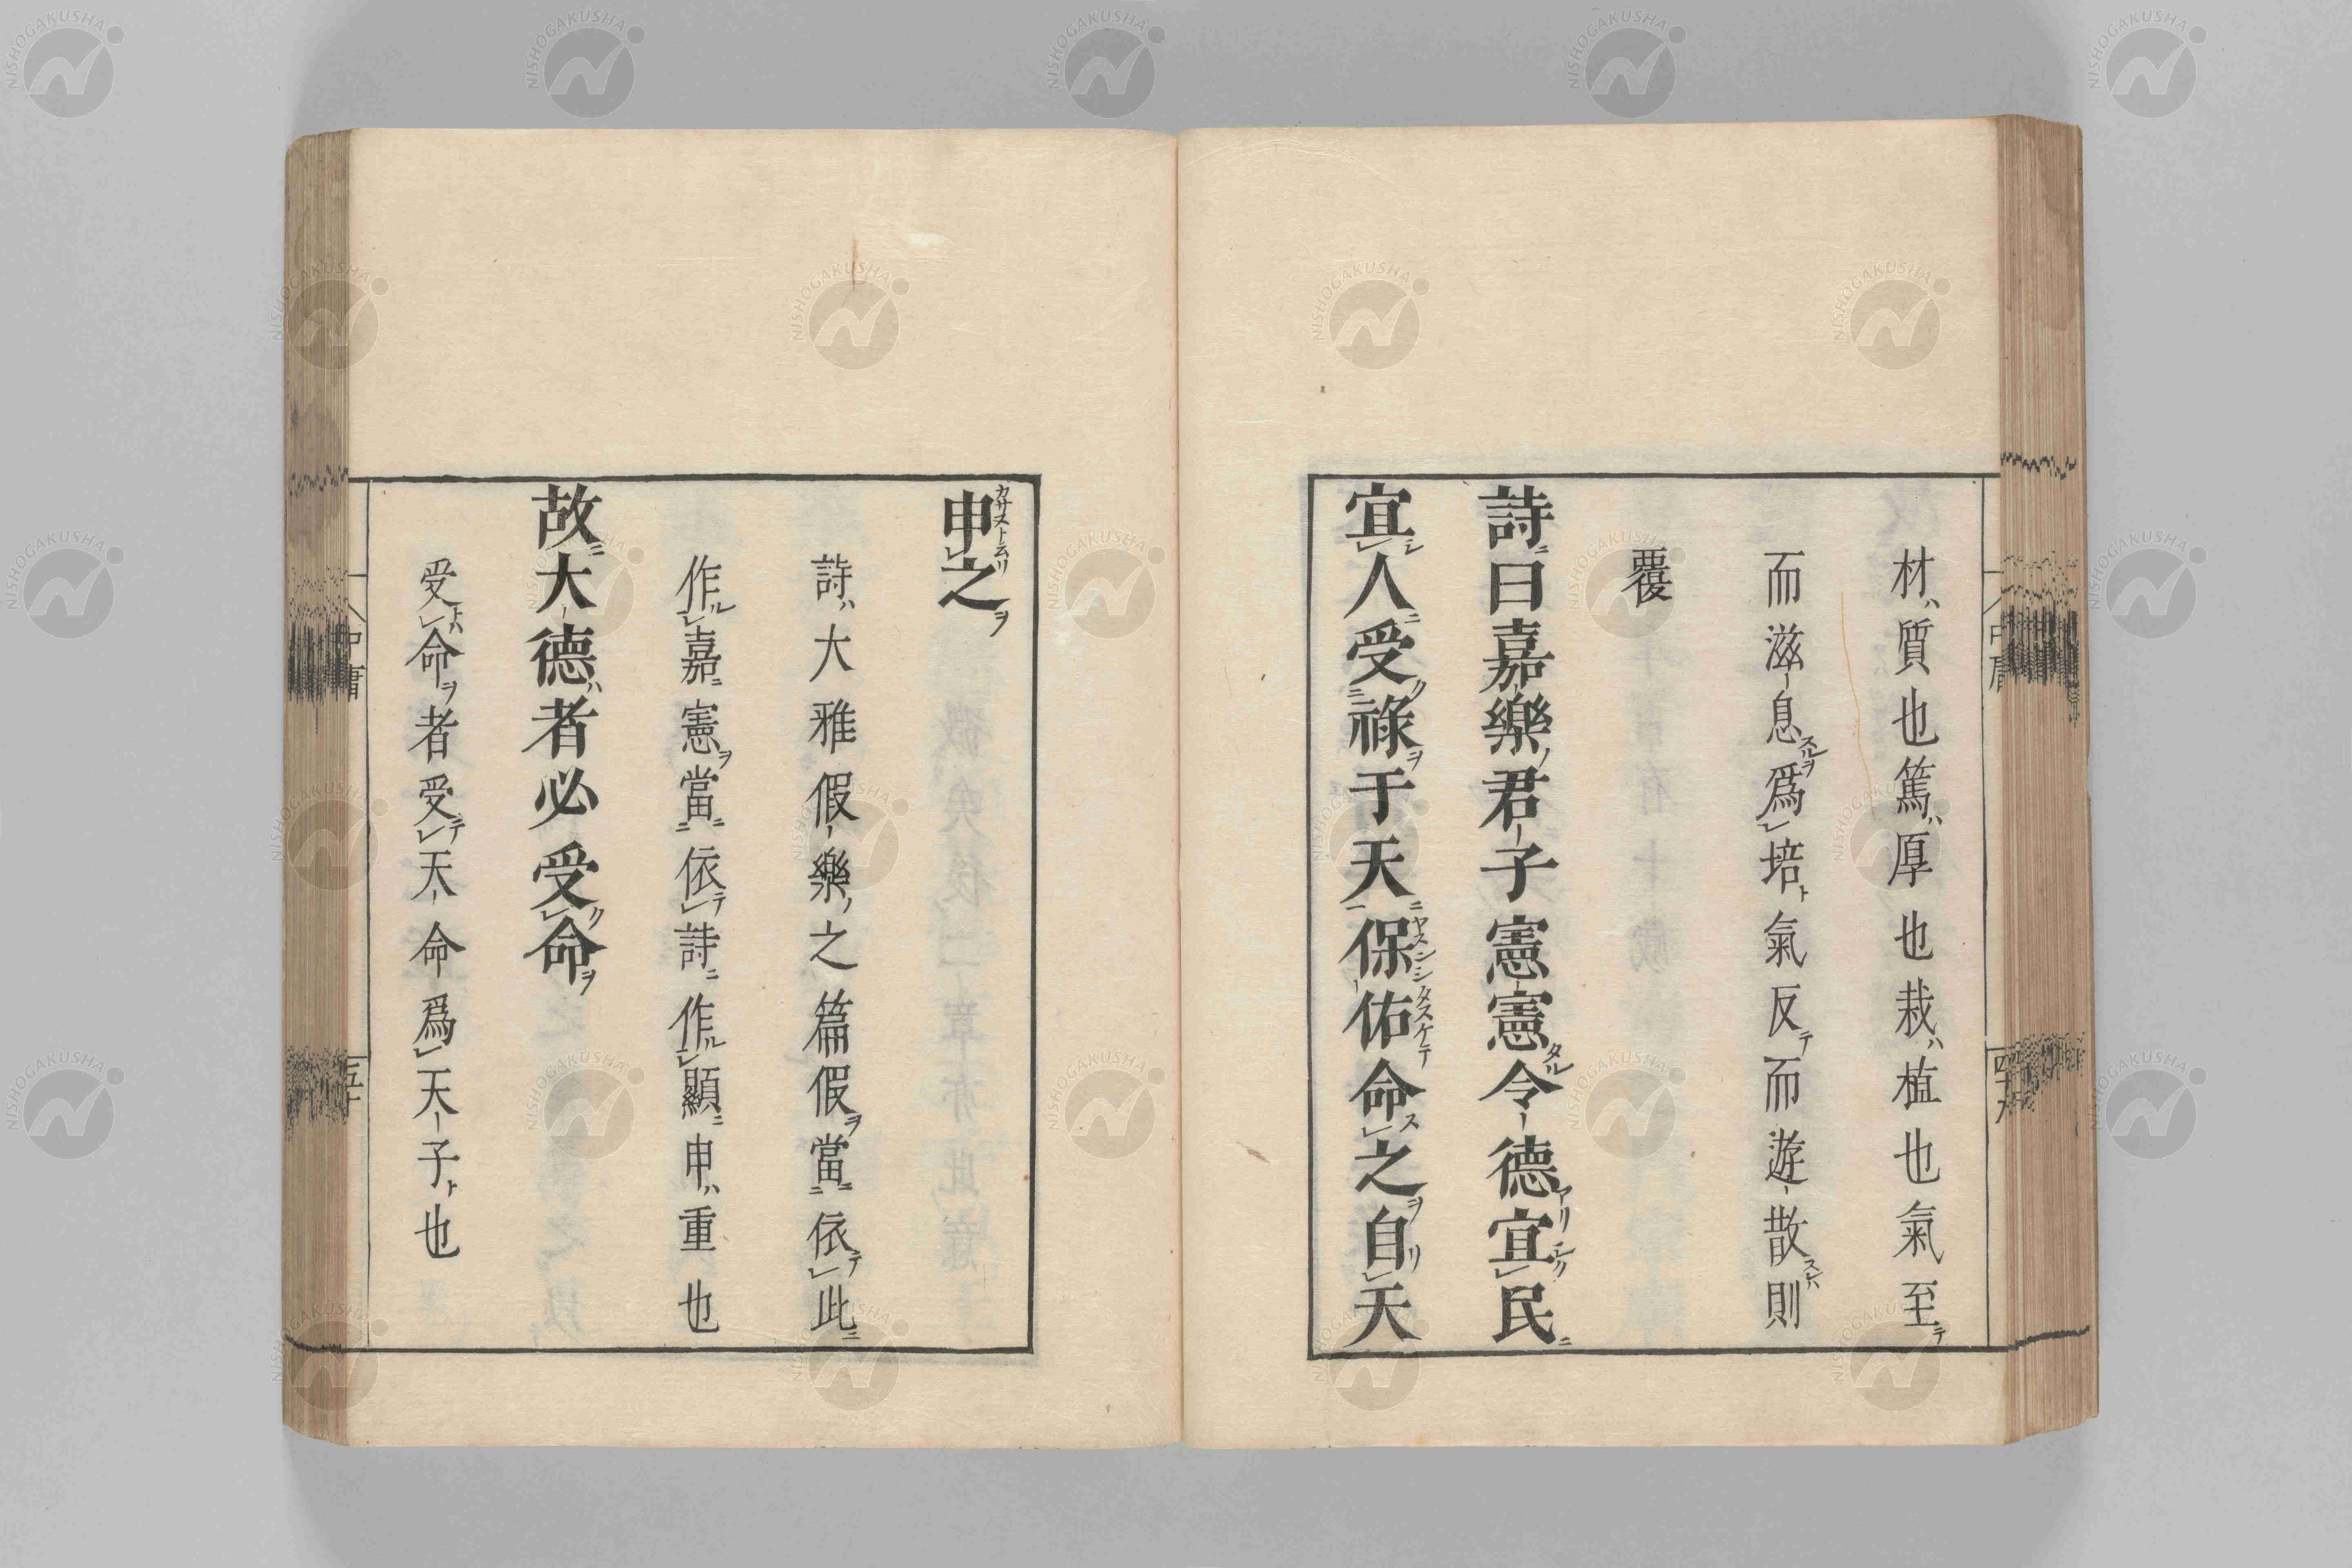 材質也篤厚也栽植也氣至
而滋息爲培氣反而遊散則
覆
詩曰嘉樂君子憲憲令德宜民
宜人受祿于天保佑命之自天
申之
詩大雅假樂之篇假當依此
作嘉憲當依詩作顯申重也
故大德者必受命
受命者受天命爲天子也
中庸
五十
NISHOGAKUSHA